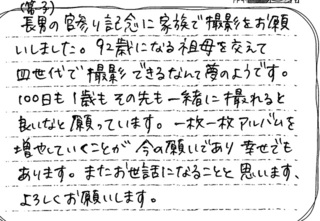 (第3子)
長男の宮参り記念に家族で撮影をお願
いしました。92歳になる祖母を交えて
四世代で撮影できるなんて夢のようです。
100日も1歳もその先も一緒に撮れると
良いなと願っています。一枚一枚アルバムを
増やしていくことが今の願いであり幸せでも
あります。またお世話になることと思います、
よろしくお願いします。